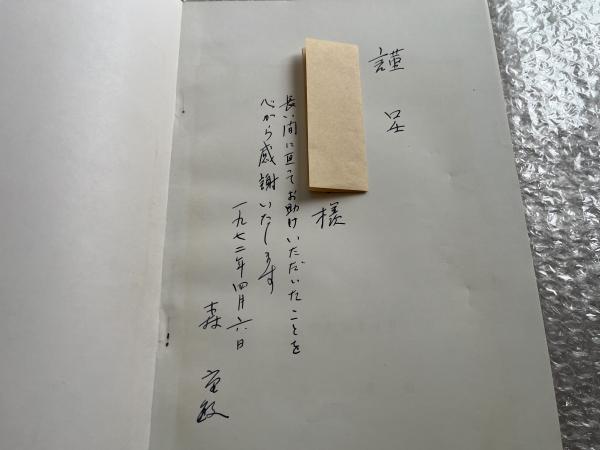 謹呈
様
長い間に亘ってお助けいただいたことを
心から感謝いたします
一九七二年四月六日
森 重敏